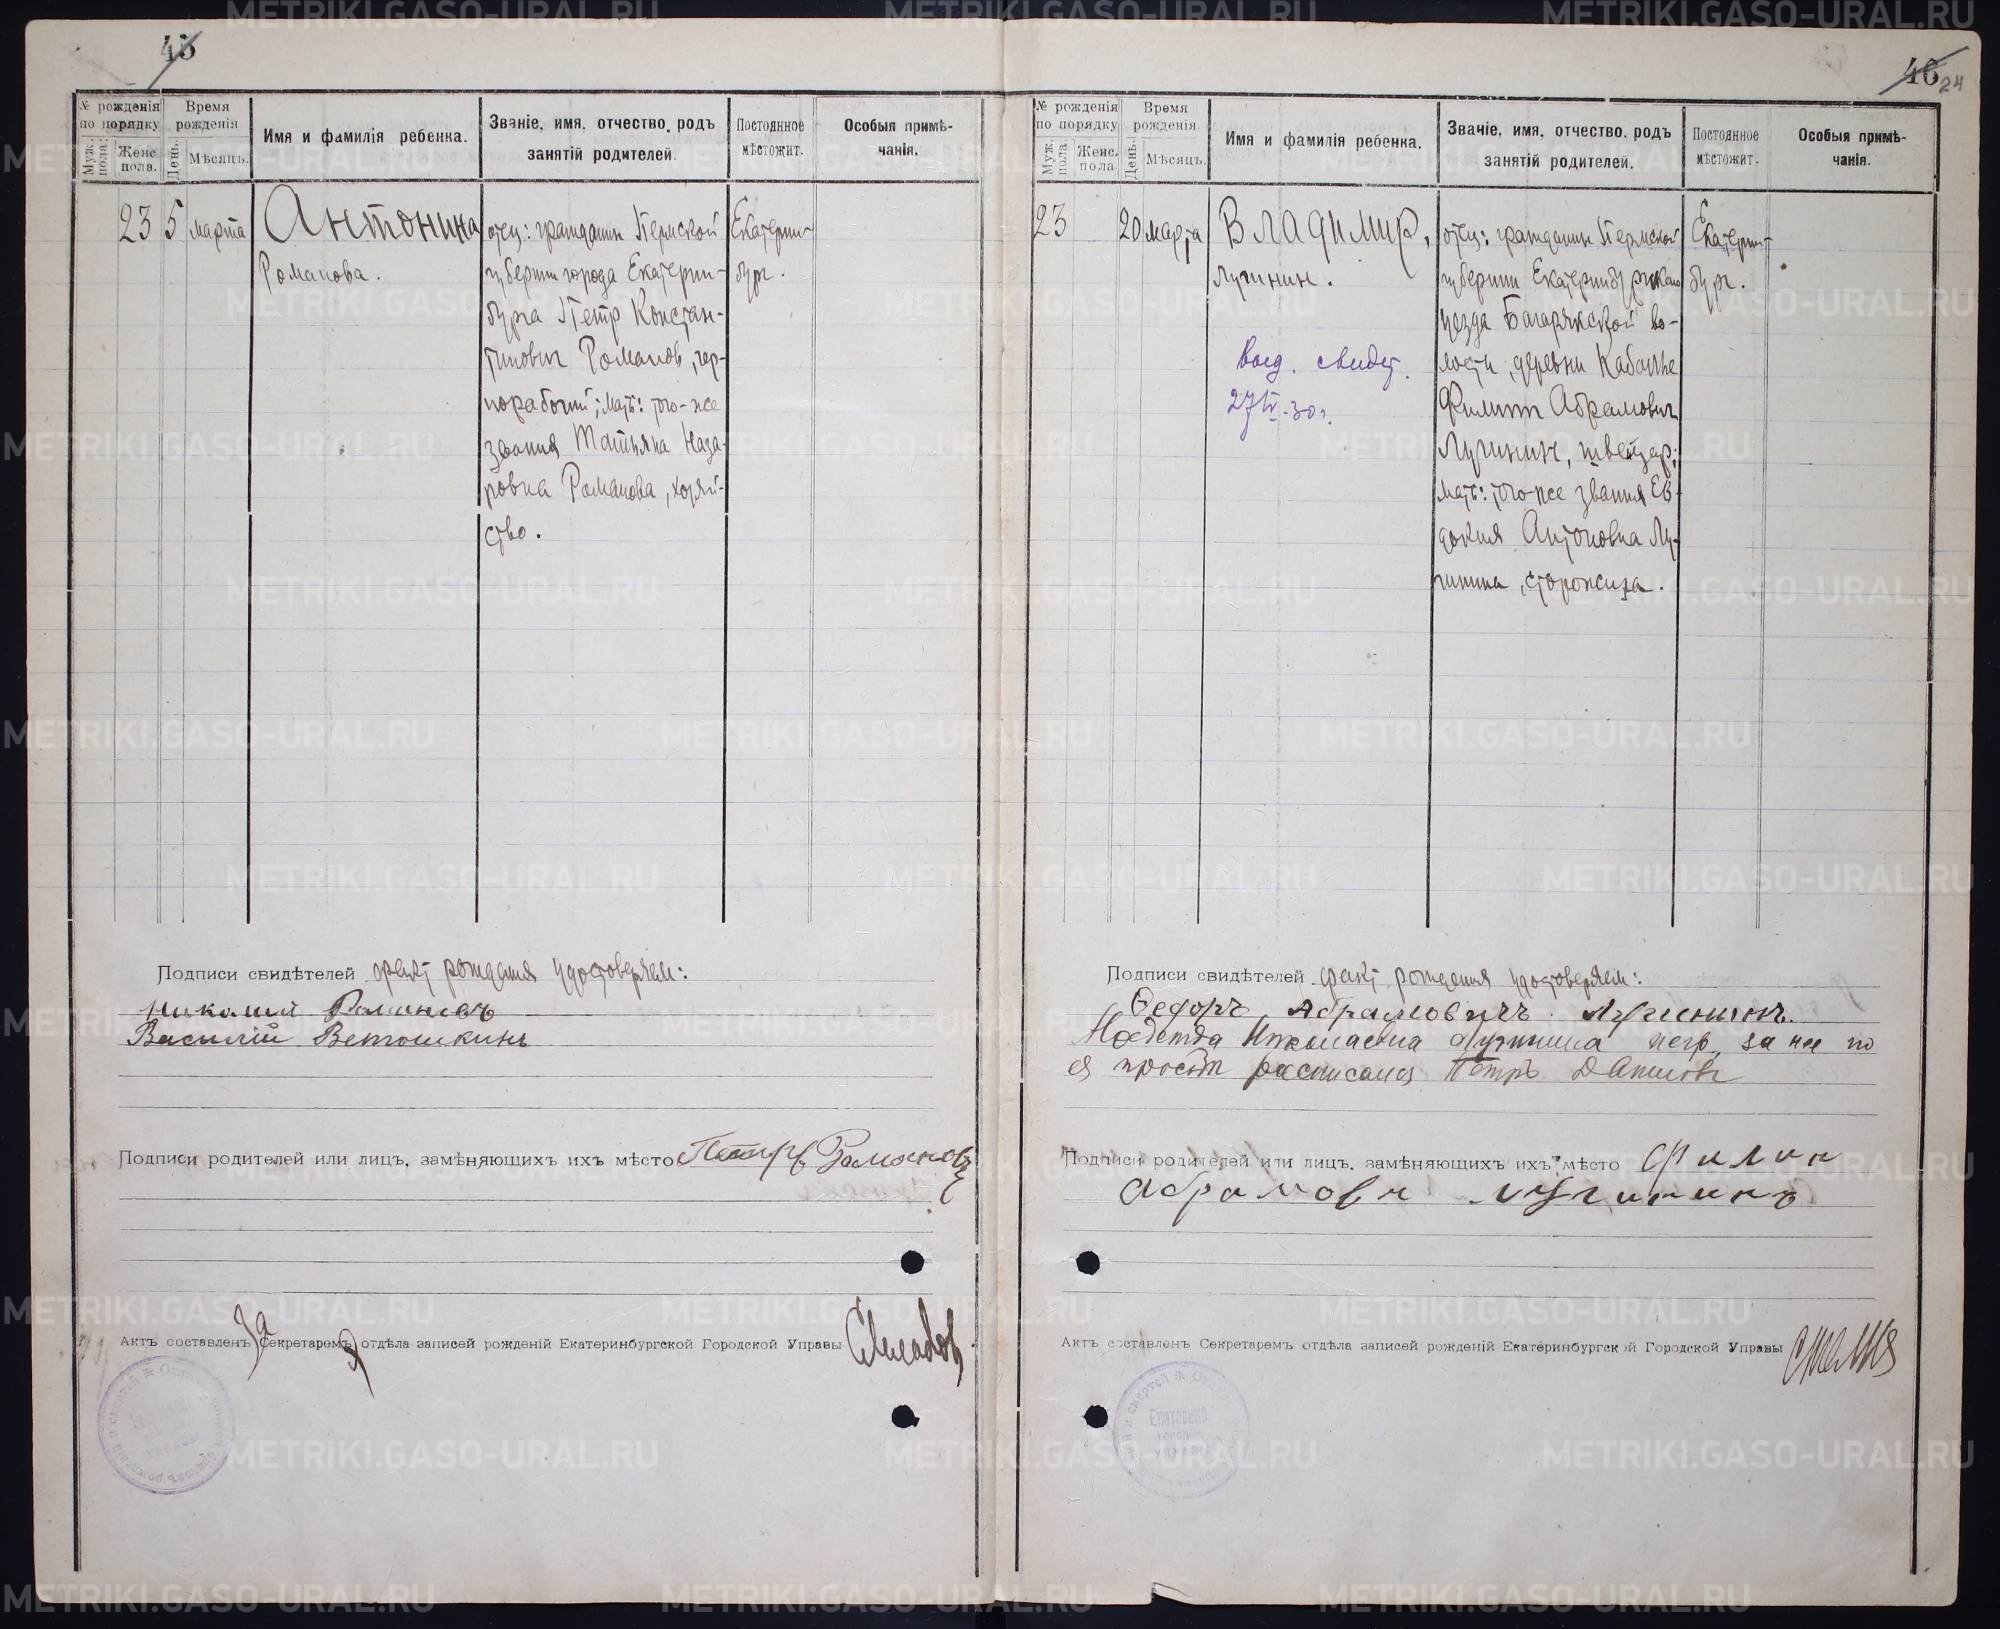 45
№ рожденія по порядку
Муж. пола.
Женс. пола.
Время рожденія
День.
Мѣсяцъ.
Имя и фамилія ребенка.
Званіе, имя, отчество, родъ занятій родителей.
Постоянное мѣстожит.
Особыя примѣчанія.
23 5 марта
Антонина
Романова.
отец: гражданин Пермской
губернии города Екатерин-
бурга Петр Констан-
тинович Романов, чер-
норабочий; мать: того-же
звания Татьяна Наза-
ровна Романова, хозяй-
ство.
Екатерин-
бург.
Подписи свидѣтелей факт рождения удостоверяем:
Николай Романовъ
Василій Ветошкинъ
Подписи родителей или лицъ, замѣняющихъ ихъ мѣсто Петръ Романовъ
Актъ составленъ За Секретаремъ отдѣла записей рожденій Екатеринбургской Городской Управы
46
24
№ рожденія по порядку
Муж. пола.
Женс. пола
Время рожденія.
День.
Мѣсяцъ.
Имя и фамилія ребенка.
Званіе, имя, отчество, родъ занятій родителей.
Постоянное мѣстожит.
Особыя примѣчанія.
23 20 марта
Владимир,
Лугинин.
Выд. свидет.
27/IV-30г.
отец: гражданин Пермской
губернии Екатеринбургского
уезда Багарякской во-
лости, деревни Кабанье
Филипп Абрамович
Лугинин, швейцар;
мать: того-же звания Ев-
докия Антоновна Лу-
гинина, сторожиха.
Екатерин-
бург.
Подписи свидѣтелей факт рождения удостоверяем:
Ѳедоръ Абрамовичъ Лугининъ
Надежда Николаевна Лугинина негр, за нее по
ея просьбѣ расписался Петръ Даниловъ
Подписи родителей или лицъ, замѣняющихъ ихъ мѣсто Филип
Абрамови Лугининъ
Актъ составленъ Секретаремъ отдѣла записей рожденій Екатеринбургской Городской Управы
METRIKI.GASO-URAL.RU